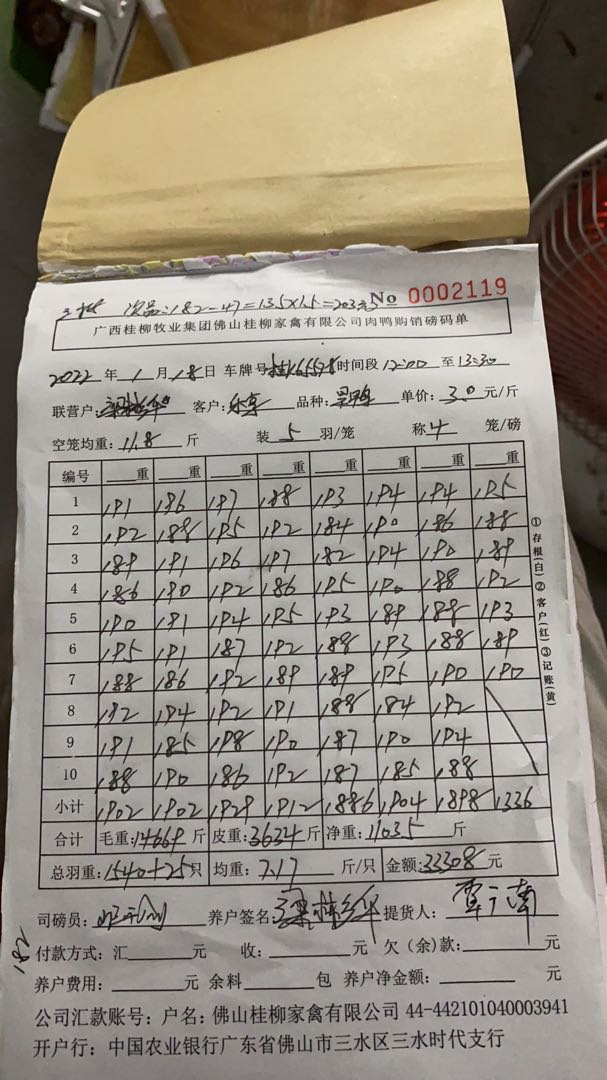 次品:182-47=135×1.5=203元
No 0002119
广西桂柳牧业集团佛山桂柳家禽有限公司肉鸭购销磅码单
2022年1月18日 车牌号 时间段12:00至13:30
联营户: 客户: 品种: 单价:3.0元/斤
空笼均重:11.8斤 装5羽/笼 称4笼/磅
编号 重 重 重 重 重 重 重 重
1 191 186 197 188 193 194 194 195
2 192 188 195 192 184 190 186 188
3 189 191 196 197 182 194 190 189
4 186 190 192 186 195 190 188 192
5 190 191 194 195 193 189 188 193
6 195 191 187 192 188 193 188 189
7 188 186 192 189 189 195 190 190
8 192 194 192 191 188 184 192
9 191 185 198 190 187 190 194
10 188 190 186 192 187 185 188
小计 1902 1902 1929 1912 1886 1904 1898 1336
合计 毛重:14669斤 皮重:3634斤 净重:11035斤
总羽重:1540+25只 均重:7.17斤/只 金额:33308元
司磅员: 养户签名: 提货人:
182
付款方式:汇 元 收: 元 欠(余)款: 元
养户费用: 元 余料 包 养户净金额: 元
公司汇款账号:户名:佛山桂柳家禽有限公司 44-442101040003941
开户行:中国农业银行广东省佛山市三水区三水时代支行
①存根(白)②客户(红)③记账(黄)